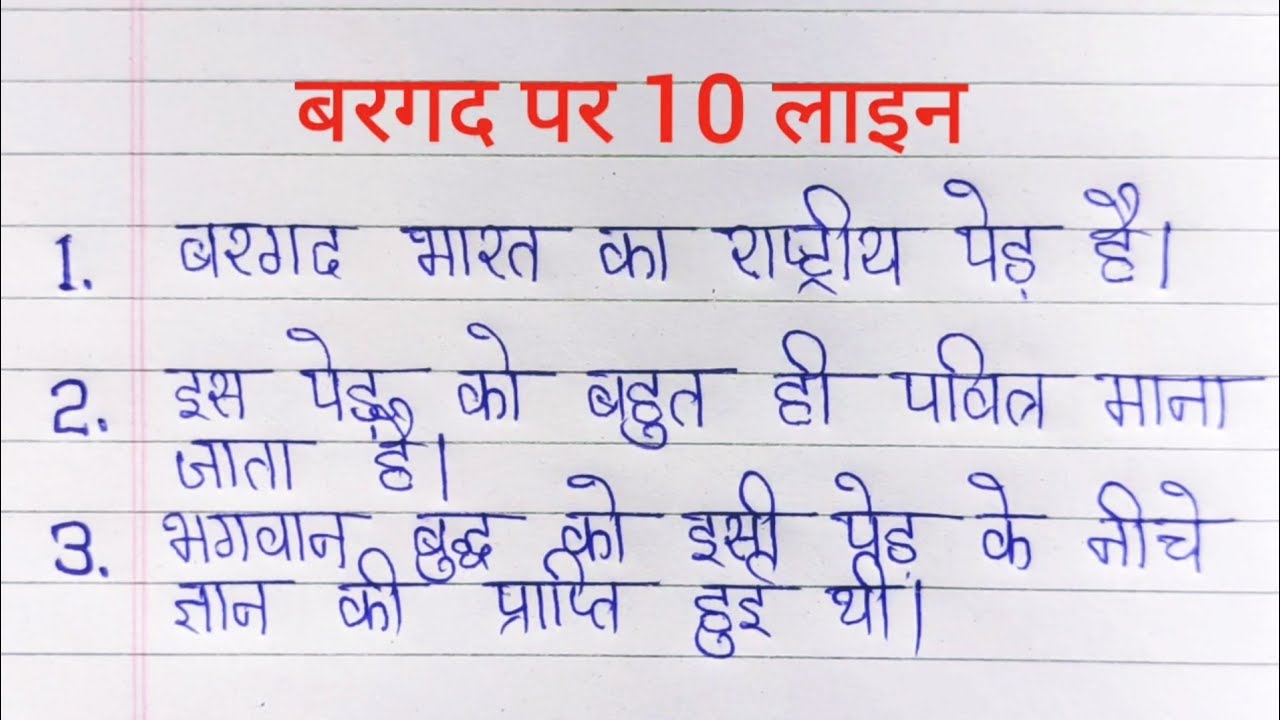 बरगद पर 10 लाइन
1. बरगद भारत का राष्ट्रीय पेड़ है।
2. इस पेड़ को बहुत ही पवित्र माना
जाता है।
3. भगवान बुद्ध को इसी पेड़ के नीचे
ज्ञान की प्राप्ति हुई थी।